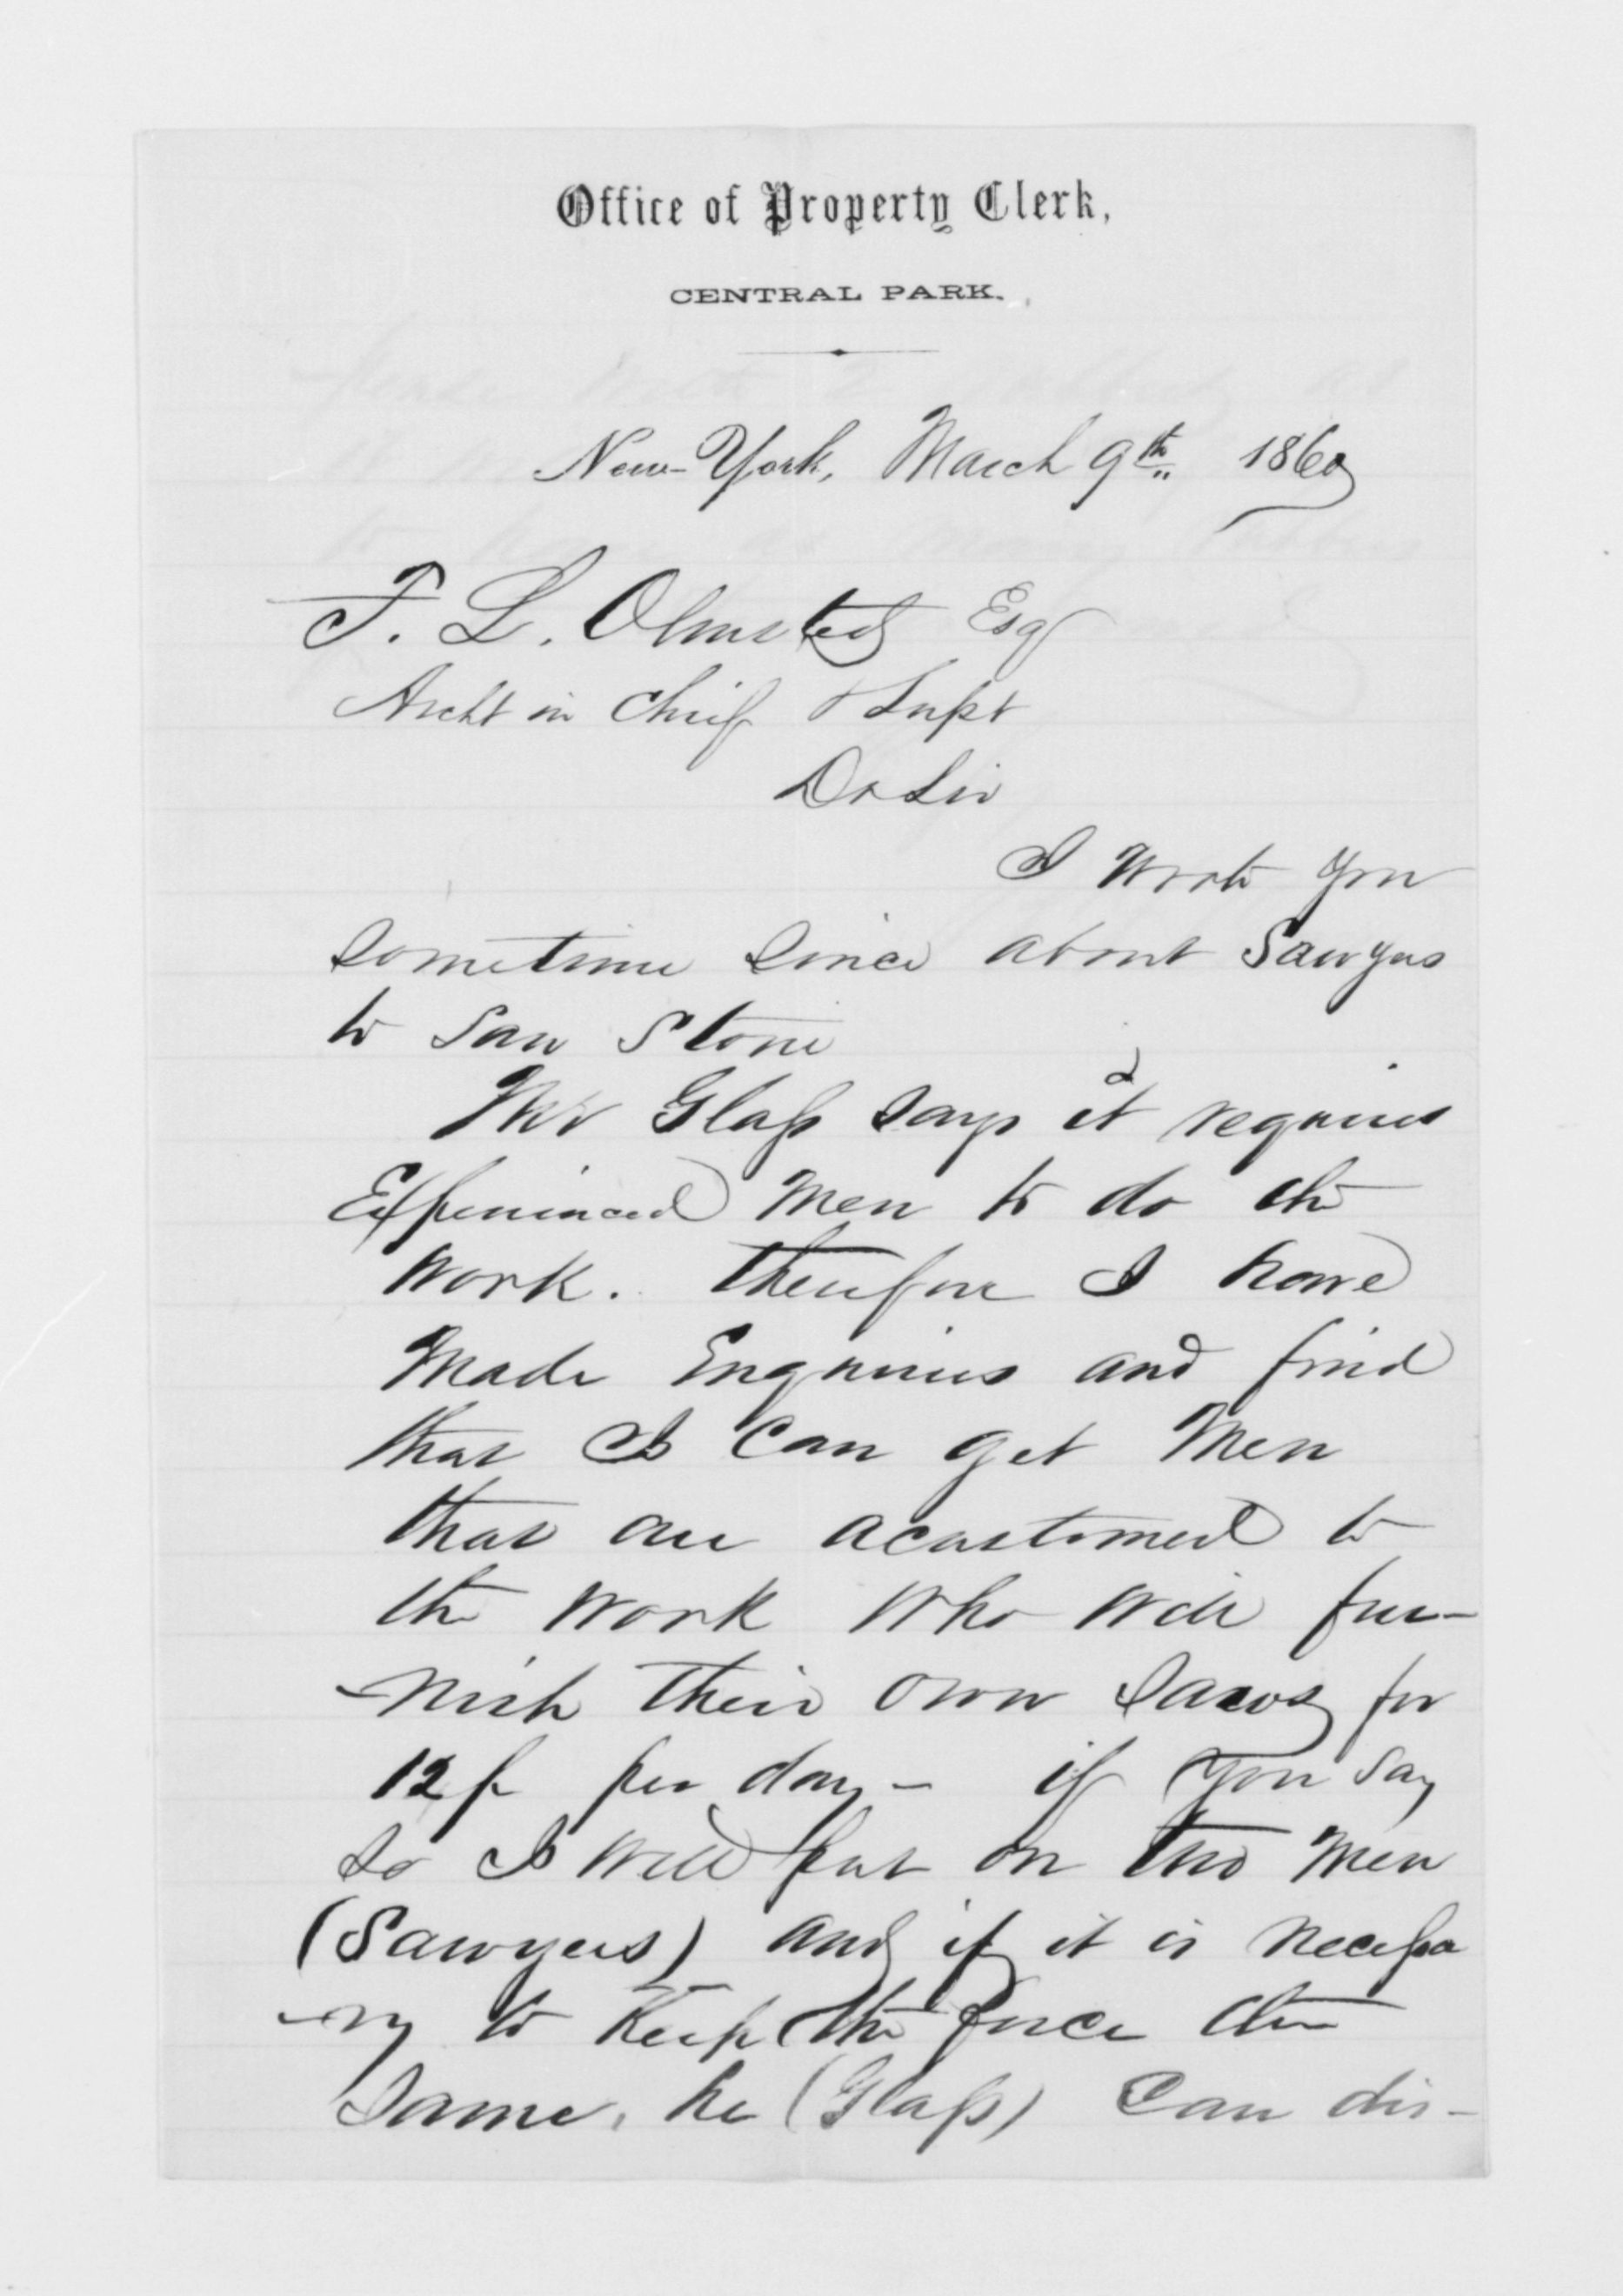 Office of Property Clerk,
CENTRAL PARK.
New-York, March 9th 1860
F. L. Olmsted Esq
Archt in Chief & Supt
Dr Sir
I wrote you
sometime since about Sawyers
to saw Stone
Mr Glass says it requires
Experienced men to do the
work. therefore I have
made Enquiries and find
that I can get men
that are acustomed to
the work who will fur-
-nish their own saws for
12/ per day - if you say
so I will put on two men
(Sawyers) and if it is necessa
-ry to keep the force the
same, he (Glass) can dis-